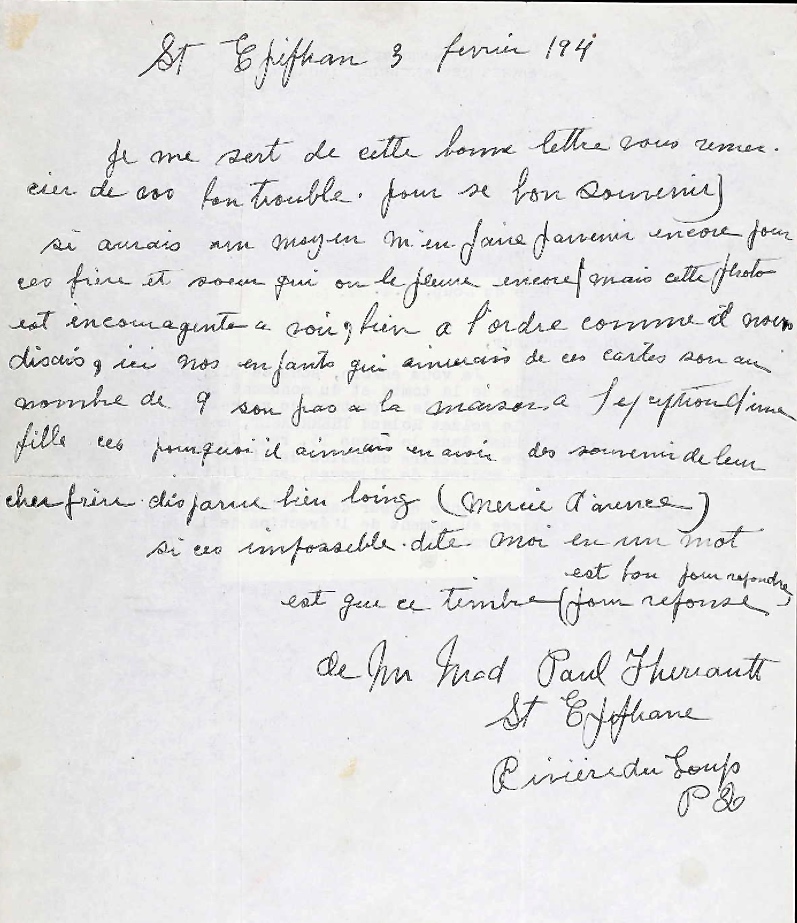 St Epifhan 3 fevrier 194
Je me sert de cette bonne lettre vous remer-
cier de bon trouble. pour se bon souvenir)
si aurais un moyen m'en faire parvenir encore pour
ces frère et soeur qui on le pleure encore, mais cette photo
est encouragente a voir, bien a l'ordre comme il nous
disais, ici nos enfants qui aimerais de ces cartes son au
nombre de 9 son pas a la maison a l'exception d'une
fille ces pourquoi il aimerais en avoir des souvenir de leur
cher frère disparue bien loing (mercie d'avence)
si ces impossible. dite moi en un mot
est bon pour repondre)
est que ce timbre (pour reponse
de Mr Mad Paul Theriault
St Epifhane
Rivière du Loup
P Q